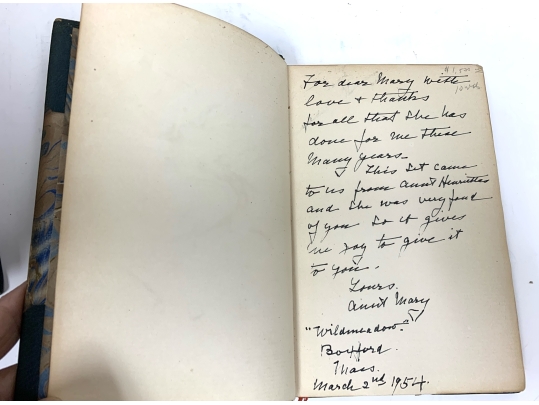 For dear Mary with
love + thanks
for all that she has
done for me these
many years.
This set came
to us from Aunt Henrietta
and she was very fond
of you so it gives
me joy to give it
to you.
Yours.
Aunt Mary
"Wildmeadow."
Boxford.
Mass.
March 2nd 1954.